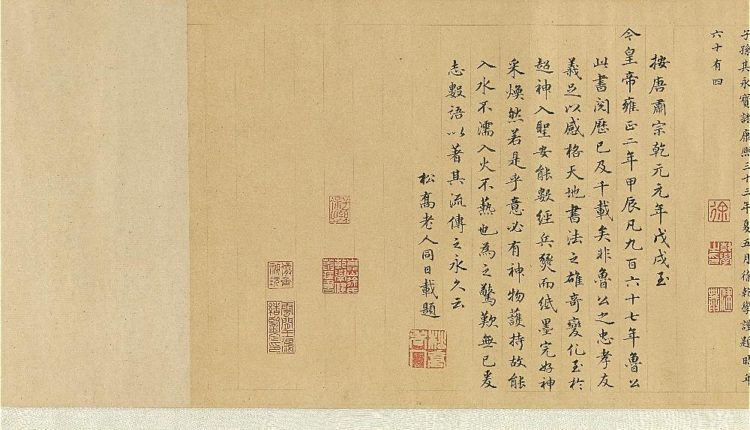 子孫其永寶諸康熙三十三年夏五月徐乾學謹題時年
六十有四
按唐肅宗乾元元年戊戌至
今皇帝雍正二年甲辰凡九百六十七年魯公
此書閱歷已及千載矣非魯公之忠孝友
義足以感格天地書法之雄奇變化至於
超神入聖安能數經兵燹而紙墨完好神
采煥然若是乎意必有神物護持故能
入水不濡入火不爇也為之驚歎無已爰
志數語以著其流傳之永久云
松喬老人同日載題